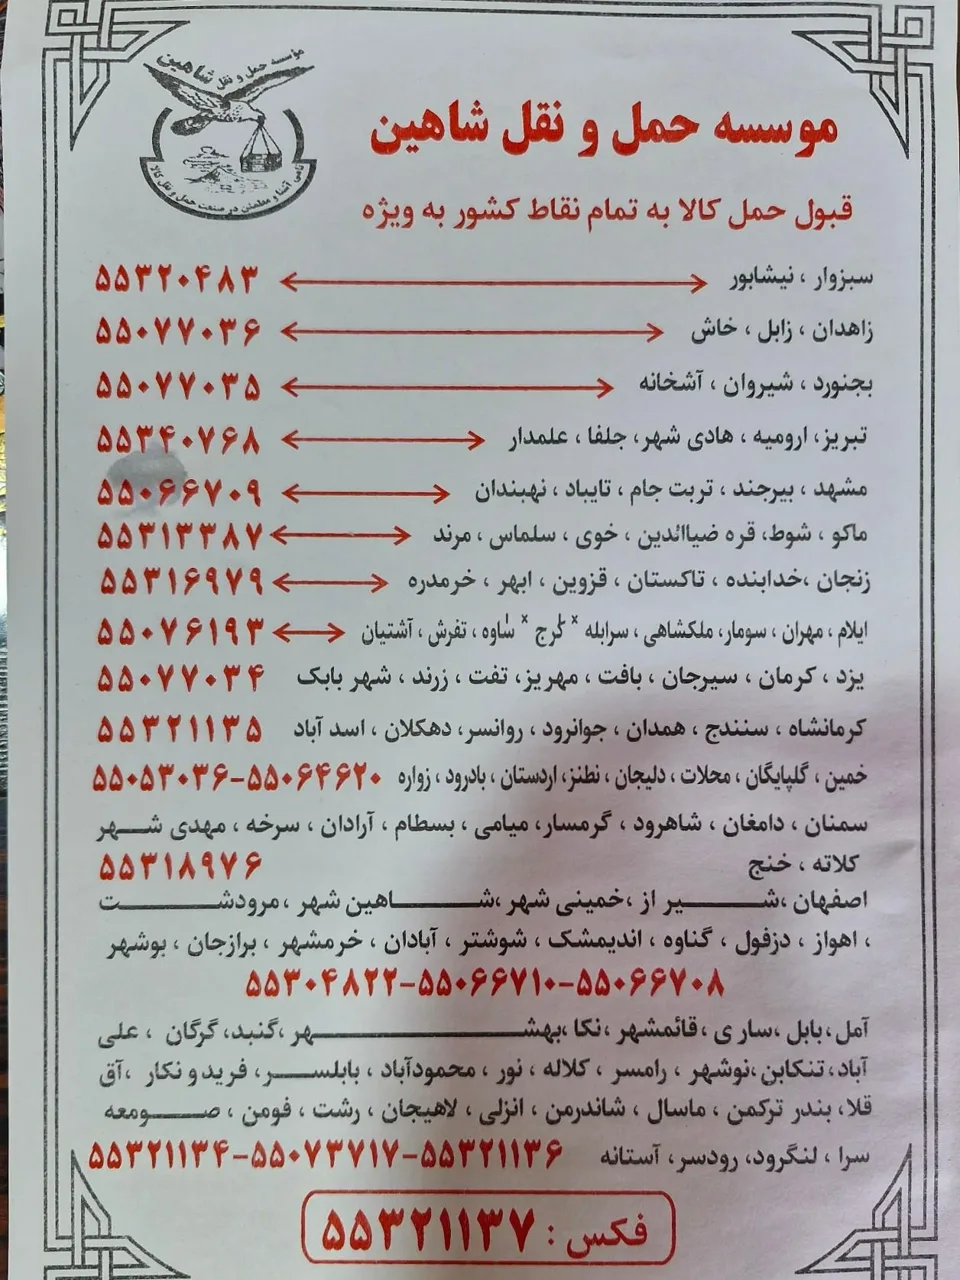 موسسه حمل و نقل شاهین
حامی آشنا و مطمئن در صنعت حمل و نقل کالا
موسسه حمل و نقل شاهین
قبول حمل کالا به تمام نقاط کشور به ویژه
سبزوار ، نیشابور ۵۵۳۲۰۴۸۳
زاهدان ، زابل ، خاش ۵۵۰۷۷۰۳۶
بجنورد ، شیروان ، آشخانه ۵۵۰۷۷۰۳۵
تبریز، ارومیه ، هادی شهر، جلفا ، علمدار ۵۵۳۴۰۷۶۸
مشهد ، بیرجند ، تربت جام ، تایباد ، نهبندان ۵۵۰۶۶۷۰۹
ماکو ، شوط، قره ضیاالدین ، خوی ، سلماس ، مرند ۵۵۳۱۳۳۸۷
زنجان ،خدابنده ، تاکستان ، قزوین ، ابهر ، خرمدره ۵۵۳۱۶۹۷۹
ایلام ، مهران ، سومار، ملکشاهی ، سرابله × کرج × ساوه ، تفرش ، آشتیان ۵۵۰۷۶۱۹۳
یزد ، کرمان ، سیرجان ، بافت ، مهریز، تفت ، زرند ، شهر بابک ۵۵۰۷۷۰۳۴
کرمانشاه ، سنندج ، همدان ، جوانرود ، روانسر، دهکلان ، اسد آباد ۵۵۳۲۱۱۳۵
خمین ، گلپایگان ، محلات ، دلیجان ، نطنز، اردستان ، بادرود ، زواره ۵۵۰۶۴۶۲۰-۵۵۰۵۳۰۳۶
سمنان ، دامغان ، شاهرود ، گرمسار، میامی ، بسطام ، آرادان ، سرخه ، مهدی شهر
کلاته ، خنج ۵۵۳۱۸۹۷۶
اصفهان ،شیر از ،خمینی شهر ،شاهین شهر ،مرودشت
، اهواز ، دزفول ، گناوه ، اندیمشک ، شوشتر ، آبادان ، خرمشهر ، برازجان ، بوشهر
۵۵۰۶۶۷۰۸-۵۵۰۶۶۷۱۰-۵۵۳۰۴۸۲۲
آمل ،بابل ،ساری ،قائمشهر ،نکا ،بهشهر ،گنبد، گرگان ، علی
آباد،تنکابن ،نوشهر ، رامسر ، کلاله ، نور ، محمودآباد ، بابلسر، فریدو نکار ،آق
قلا، بندر ترکمن ، ماسال ، شاندرمن ، انزلی ، لاهیجان ، رشت ، فومن ، صومعه
سرا ، لنگرود، رودسر، آستانه ۵۵۳۲۱۱۳۶-۵۵۰۷۳۷۱۷-۵۵۳۲۱۱۳۴
فکس : ۵۵۳۲۱۱۳۷